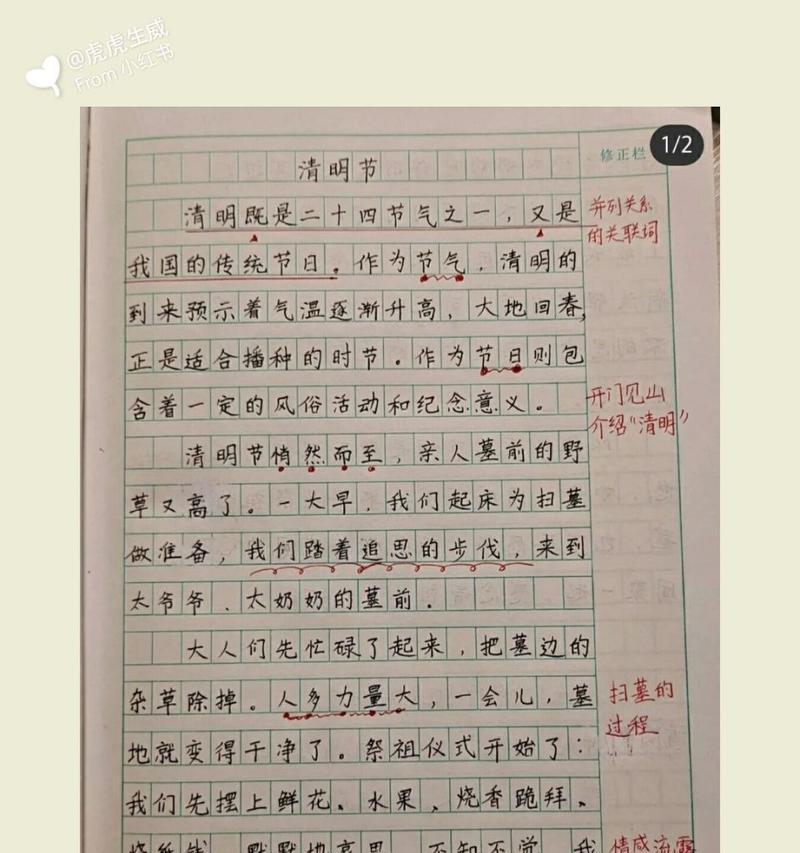 @虎虎生威
From 小红书
1/2
修正栏
清明节
清明既是二十四节气之一，又是
并列关系
的关联词
我国的传统节日。作为节气，清明的
到来预示着气温逐渐升高，大地回春，
正是适合播种的时节。作为节日则包
含着一定的风俗活动和纪念意义。
开门见山
介绍“清明”
清明节悄然而至，亲人墓前的野
草又高了。一大早，我们起床为扫墓
做准备，我们踏着追思的步伐，来到
太爷爷、太奶奶的墓前．
大人们先忙碌了起来，把墓边的
杂草除掉。人多力量大，一会儿，墓
扫墓的
过程
地就变得干净了。祭祖仪式开始了：
我们先摆上鲜花、水果，烧香跪拜、
烧纸钱，默默地哀思，不知不觉，我
情感流露